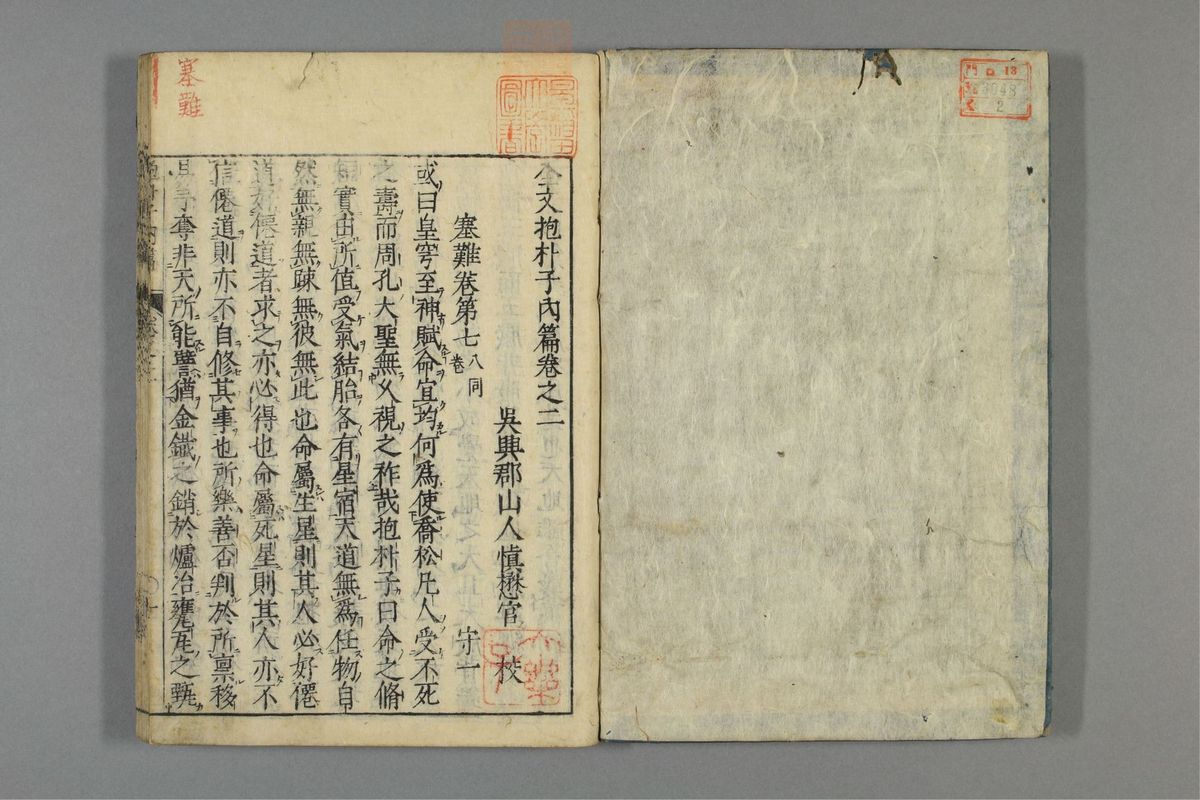 門 ロ 13
號 3048
2
全文抱朴子內篇卷之二
吳興郡山人慎懋官 校
塞難卷第七 八同卷 守一
或曰皇穹至神賦命宜均何爲使喬松凡人受不死
之壽而周孔大聖無久視之祚哉抱朴子曰命之脩
短實由所值受氣結胎各有星宿天道無爲任物自
然無親無疎無彼無此也命屬生星則其人必好僊
道好僊道者求之亦必得也命屬死星則其人亦不
信僊道則亦不自修其事也所樂善否判於所禀移
易予奪非天所能譬猶金鐵之銷於爐冶甕瓦之甄
塞難